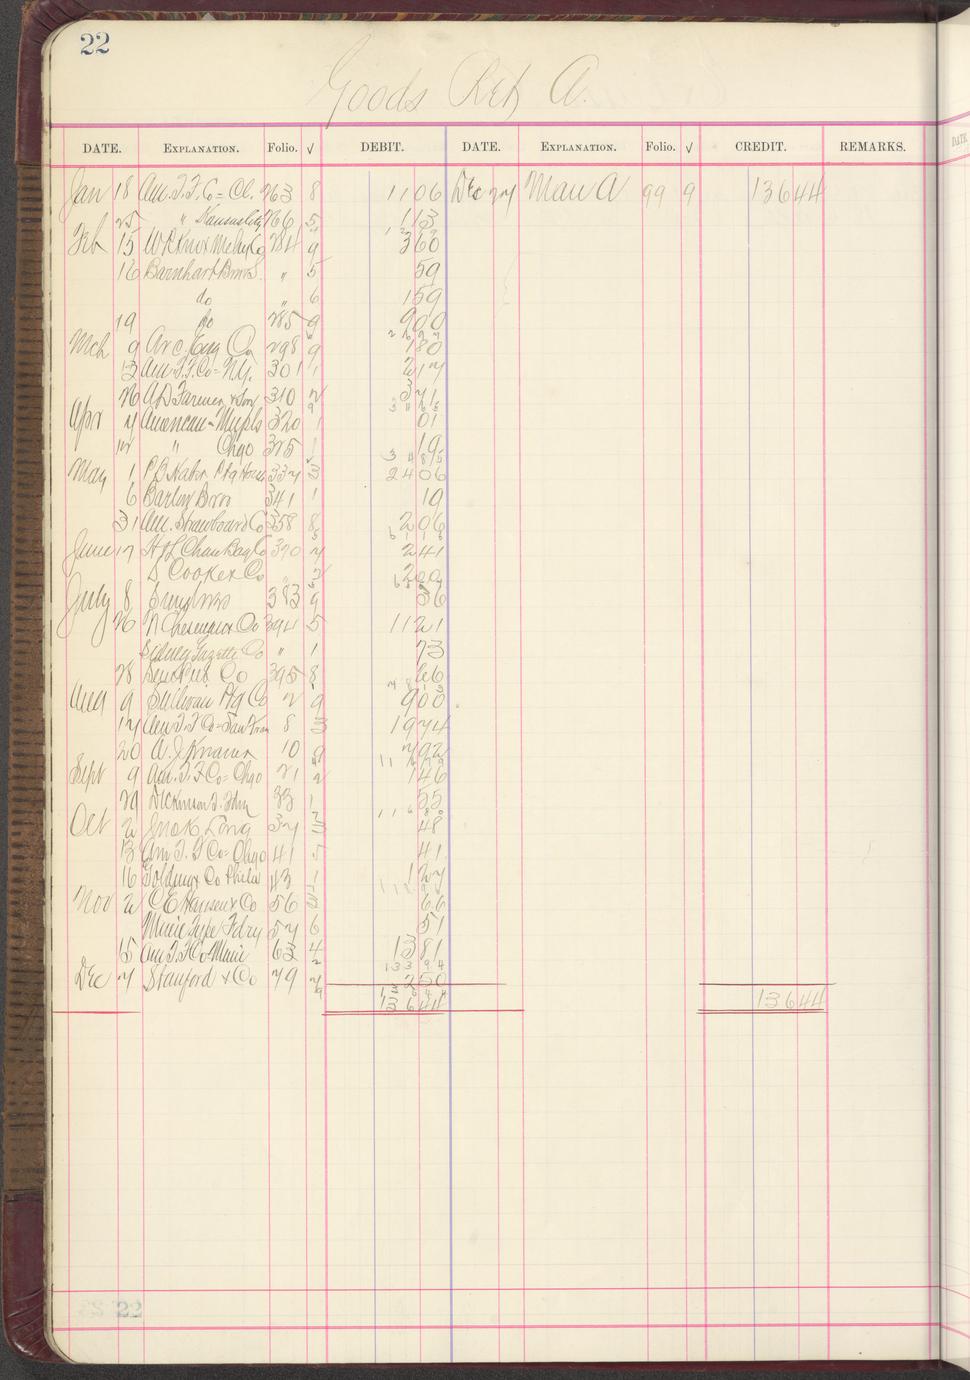 22
Goods Ret A.
DATE. EXPLANATION. Folio. √ DEBIT. DATE. EXPLANATION. Folio. √ CREDIT. REMARKS.
Jan 18 Am. T.F. Co = Cl. 263 8 1106 Dec 24 Man A 99 9 13644
25 " Kansas City 266 5 113
Feb 15 284 9 360
16 Barnhart Bros " 5 59
do " 6 159
19 do 285 9 900
Mch 9 Arc. Eng Co 298 9 180
13 Am T.F. Co = N.Y. 301 1 217
26 A.D. Farmer & Son 310 2 371
Apr 4 American = 320 1 01
12 " Chgo 325 19
May 1 334 3 2406
6 Bros 341 1 19
31 Am. Strawboard Co 358 8 206
June 17 Bag Co 370 241
Cooke & Co " 200
July 8 Bros 383 9 36
26 Co 394 5 1121
Sidney Gazette Co " 1 73
28 Co 395 8 66
Aug 9 Sullivan Ptg Co 2 9 900
17 Am T F Co = San Fran 8 3 1974
20 A. J. Kramer 10 792
Sept 9 Am. T. F Co = Chgo 21 2 146
29 Dickinson T. Fdry 33 1 55
Oct 2 Long 34 3 48
13 Am T. F Co = Chgo 41 5 41
16 Golding & Co Phila 43 1 127
Nov 2 C E Hansen & Co 56 3 66
Type Fdry 57 6 51
15 Am T. F Co 63 4 1381
Dec 7 Stanford & Co 79 250
13644 13644
22